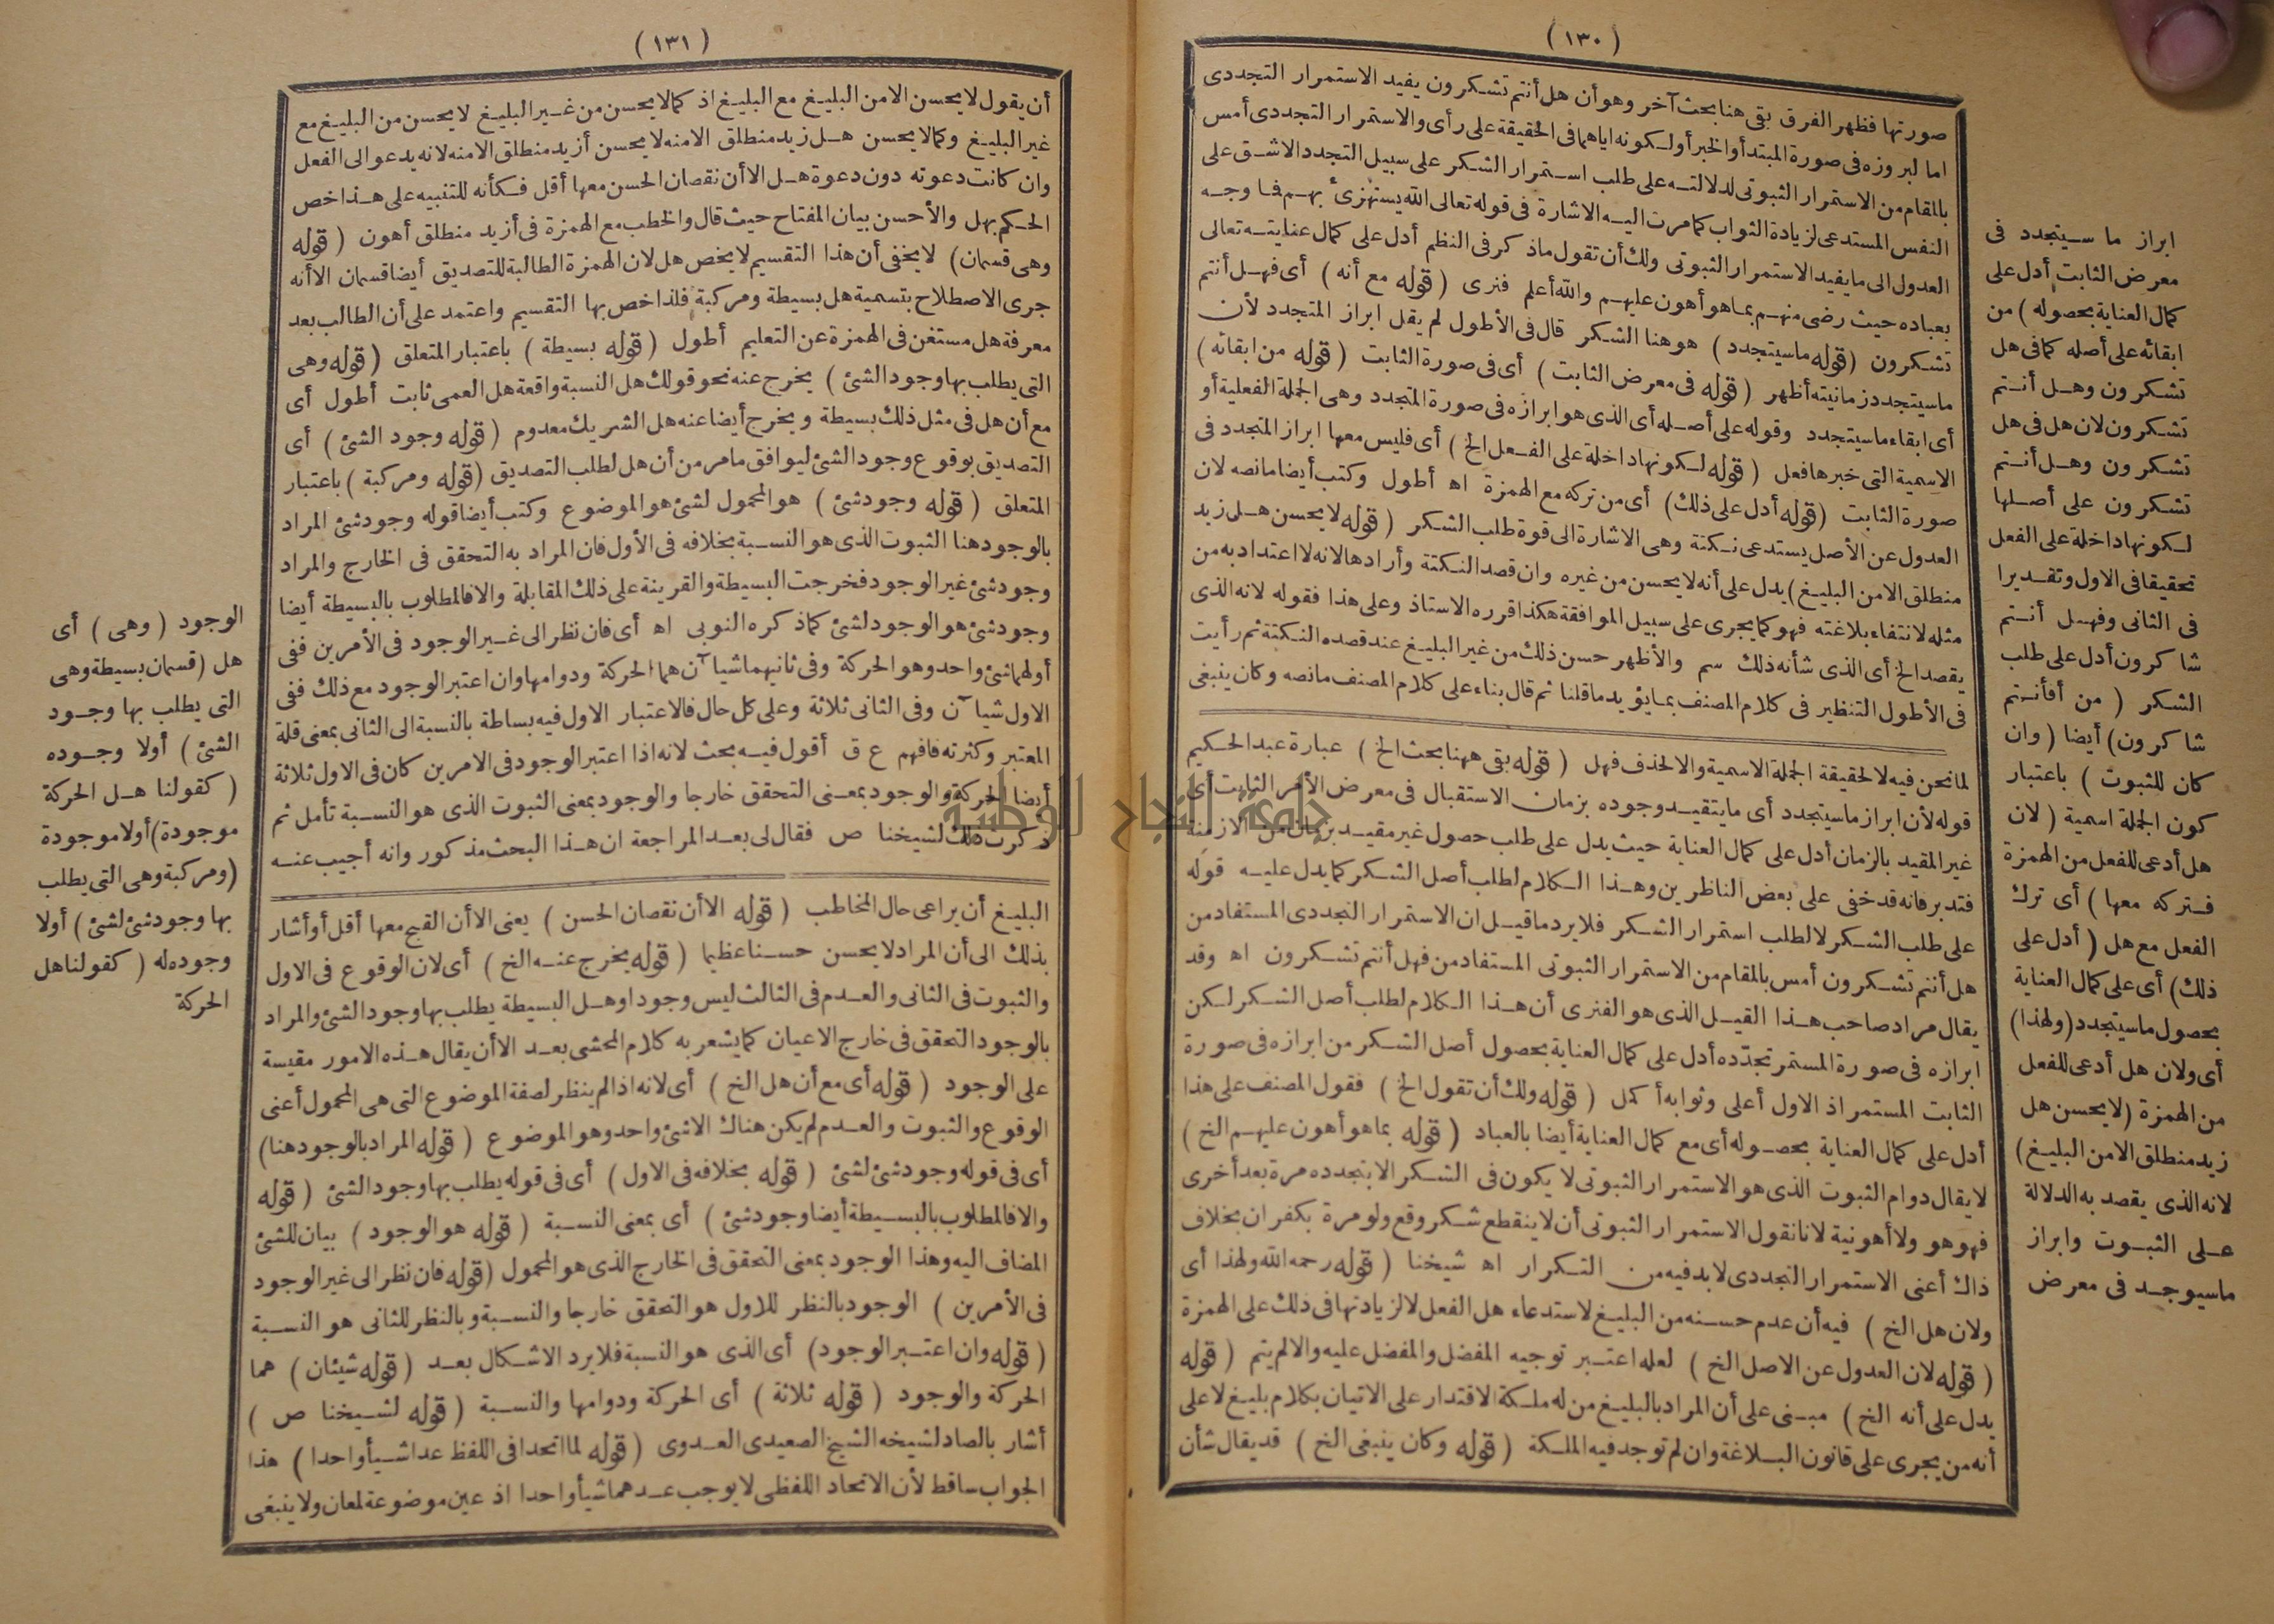 ( ١٣٠ )
صورتها فظهر الفرق بقى هنا بحث آخر وهو أن هل أنتم تشكرون يفيد الاستمرار التجددى
اما لبروزه فى صورة المبتدأ والخبر أولكونه اياهما فى الحقيقة على رأى والاستمرار التجددى أمس
بالمقام من الاستمرار الثبوتى لدلالته على طلب استمرار الشكر على سبيل التجدد الاشق على
النفس المستدعى لزيادة الثواب كما مرت اليه الاشارة فى قوله تعالى الله يستهزئ بهم فما وجه
العدول الى ما يفيد الاستمرار الثبوتى ولك أن تقول ما ذكر فى النظم أدل على كمال عنايته تعالى
بعباده حيث رضى منهم بما هو أهون عليهم والله أعلم فنرى ( قوله مع أنه ) أى فهل أنتم
تشكرون ( قوله ما سيتجدد ) هو هنا الشكر قال فى الأطول لم يقل ابراز المتجدد لأن
ما سيتجدد زمانيته أظهر ( قوله فى معرض الثابت ) أى فى صورة الثابت ( قوله من ابقائه )
أى ابقاء ما سيتجدد وقوله على أصله أى الذى هو ابرازه فى صورة المتجدد وهى الجملة الفعلية أو
الاسمية التى خبرها فعل ( قوله لكونها داخلة على الفعل الخ ) أى فليس معها ابراز المتجدد فى
صورة الثابت ( قوله أدل على ذلك ) أى من تركه مع الهمزة اه أطول وكتب أيضا ما نصه لان
العدول عن الأصل يستدعى نكتة وهى الاشارة الى قوة طلب الشكر ( قوله لا يحسن هل زيد
منطلق الا من البليغ ) يدل على أنه لا يحسن من غيره وان قصد النكتة وأرادها لانه لا اعتداد به من
مثله لانتفاء بلاغته فهو كما يجرى على سبيل الموافقة هكذا قرره الاستاذ وعلى هذا فقوله لانه الذى
يقصد الخ أى الذى شأنه ذلك سم والأظهر حسن ذلك من غير البليغ عند قصده النكتة ثم رأيت
فى الأطول التنظير فى كلام المصنف بما يؤيد ما قلنا ثم قال بناء على كلام المصنف ما نصه وكان ينبغى
لما نحن فيه لا لحقيقة الجملة الاسمية والا لحذف فهل ( قوله بقى ههنا بحث الخ ) عبارة عبد الحكيم
قوله لأن ابراز ما سيتجدد أى ما يتقيد وجوده بزمان الاستقبال فى معرض الأمر الثابت أى
غير المقيد بالزمان أدل على كمال العناية حيث يدل على طلب حصول غير مقيد بزمان من الازمنة
فتدبر فانه قد خفى على بعض الناظرين وهذا الكلام لطلب أصل الشكر كما يدل عليه قوله
على طلب الشكر لا لطلب استمرار الشكر فلا يرد ما قيل ان الاستمرار التجددى المستفاد من
هل أنتم تشكرون أمس بالمقام من الاستمرار الثبوتى المستفاد من فهل أنتم تشكرون اه وقد
يقال مراد صاحب هذا القيل الذى هو الفنرى أن هذا الكلام لطلب أصل الشكر لكن
ابرازه فى صورة المستمر تجدّده أدل على كمال العناية بحصول أصل الشكر من ابرازه فى صورة
الثابت المستمر اذ الاول أعلى وثوابه أكمل ( قوله ولك أن تقول الخ ) فقول المصنف على هذا
أدل على كمال العناية بحصوله أى مع كمال العناية أيضا بالعباد ( قوله بما هو أهون عليهم الخ )
لا يقال دوام الثبوت الذى هو الاستمرار الثبوتى لا يكون فى الشكر الا بتجدده مرة بعد أخرى
فهو هو ولا أهونية لانا نقول الاستمرار الثبوتى أن لا ينقطع شكر وقع ولو مرة بكفران بخلاف
ذاك أعنى الاستمرار التجددى لابد فيه من التكرار اه شيخنا ( قوله رحمه الله ولهذا أى
ولان هل الخ ) فيه أن عدم حسنه من البليغ لاستدعاء هل الفعل لا لزيادتها فى ذلك على الهمزة
( قوله لان العدول عن الاصل الخ ) لعله اعتبر توجيه المفضل والمفضل عليه والا لم يتم ( قوله
يدل على أنه الخ ) مبنى على أن المراد بالبليغ من له ملكة الاقتدار على الاتيان بكلام بليغ لا على
أنه من يجرى على قانون البلاغة وان لم توجد فيه الملكة ( قوله وكان ينبغى الخ ) قد يقال شأن
ابراز ما سيتجدد فى
معرض الثابت أدل على
كمال العناية بحصوله ) من
ابقائه على أصله كما فى هل
تشكرون وهل أنتم
تشكرون لان هل فى هل
تشكرون وهل أنتم
تشكرون على أصلها
لكونها داخلة على الفعل
تحقيقا فى الاول وتقديرا
فى الثانى وفهل أنتم
شاكرون أدل على طلب
الشكر ( من أفأنتم
شاكرون ) أيضا ( وان
كان للثبوت ) باعتبار
كون الجملة اسمية ( لان
هل أدعى للفعل من الهمزة
فتركه معها ) أى ترك
الفعل مع هل ( أدل على
ذلك ) أى على كمال العناية
بحصول ما سيتجدد ( ولهذا )
أى ولان هل أدعى للفعل
من الهمزة ( لا يحسن هل
زيد منطلق الا من البليغ )
لانه الذى يقصد به الدلالة
على الثبوت وابراز
ما سيوجد فى معرض
( ١٣١ )
أن يقول لا يحسن الا من البليغ مع البليغ اذ كما لا يحسن من غير البليغ لا يحسن من البليغ مع
غير البليغ وكما لا يحسن هل زيد منطلق الا منه لا يحسن أزيد منطلق الا منه لانه يدعو الى الفعل
وان كانت دعوته دون دعوة هل الا أن نقصان الحسن معها أقل فكأنه للتنبيه على هذا خص
الحكم بهل والأحسن بيان المفتاح حيث قال والخطب مع الهمزة فى أزيد منطلق أهون ( قوله
وهى قسمان ) لا يخفى أن هذا التقسيم لا يخص هل لان الهمزة الطالبة للتصديق أيضا قسمان الا أنه
جرى الاصطلاح بتسمية هل بسيطة ومركبة فلذا خص بها التقسيم واعتمد على أن الطالب بعد
معرفة هل مستغن فى الهمزة عن التعليم أطول ( قوله بسيطة ) باعتبار المتعلق ( قوله وهى
التى يطلب بها وجود الشئ ) يخرج عنه نحو قولك هل النسبة واقعة هل العمى ثابت أطول أى
مع أن هل فى مثل ذلك بسيطة ويخرج أيضا عنه هل الشريك معدوم ( قوله وجود الشئ ) أى
التصديق بوقوع وجود الشئ ليوافق ما مر من أن هل لطلب التصديق ( قوله ومركبة ) باعتبار
المتعلق ( قوله وجود شئ ) هو المحمول لشئ هو الموضوع وكتب أيضا قوله وجود شئ المراد
بالوجود هنا الثبوت الذى هو النسبة بخلافه فى الأول فان المراد به التحقق فى الخارج والمراد
وجود شئ غير الوجود فخرجت البسيطة والقرينة على ذلك المقابلة والا فالمطلوب بالبسيطة أيضا
وجود شئ هو الوجود لشئ كما ذكره النوبى اه أى فان نظر الى غير الوجود فى الأمرين ففى
أولهما شئ واحد وهو الحركة وفى ثانيهما شيا آن هما الحركة ودوامها وان اعتبر الوجود مع ذلك ففى
الاول شيا آن وفى الثانى ثلاثة وعلى كل حال فالاعتبار الاول فيه بساطة بالنسبة الى الثانى بمعنى قلة
المعتبر وكثرته فافهم ع ق أقول فيه بحث لانه اذا اعتبر الوجود فى الامرين كان فى الاول ثلاثة
أيضا الحركة والوجود بمعنى التحقق خارجا والوجود بمعنى الثبوت الذى هو النسبة تأمل ثم
ذكرت ذلك لشيخنا ص فقال لى بعد المراجعة ان هذا البحث مذكور وانه أجيب عنه
البليغ أن يراعى حال المخاطب ( قوله الا أن نقصان الحسن ) يعنى الا أن القبح معها أقل أو أشار
بذلك الى أن المراد لا يحسن حسنا عظيما ( قوله يخرج عنه الخ ) أى لان الوقوع فى الاول
والثبوت فى الثانى والعدم فى الثالث ليس وجودا وهل البسيطة يطلب بها وجود الشئ والمراد
بالوجود التحقق فى خارج الاعيان كما يشعر به كلام المحشى بعد الا أن يقال هذه الامور مقيسة
على الوجود ( قوله أى مع أن هل الخ ) أى لانه اذا لم ينظر لصفة الموضوع التى هى المحمول أعنى
الوقوع والثبوت والعدم لم يكن هناك الا شئ واحد وهو الموضوع ( قوله المراد بالوجود هنا )
أى فى قوله وجود شئ لشئ ( قوله بخلافه فى الاول ) أى فى قوله يطلب بها وجود الشئ ( قوله
والا فالمطلوب بالبسيطة أيضا وجود شئ ) أى بمعنى النسبة ( قوله هو الوجود ) بيان للشئ
المضاف اليه وهذا الوجود بمعنى التحقق فى الخارج الذى هو المحمول ( قوله فان نظر الى غير الوجود
فى الأمرين ) الوجود بالنظر للاول هو التحقق خارجا والنسبة وبالنظر للثانى هو النسبة
( قوله وان اعتبر الوجود ) أى الذى هو النسبة فلا يرد الاشكال بعد ( قوله شيئان ) هما
الحركة والوجود ( قوله ثلاثة ) أى الحركة ودوامها والنسبة ( قوله لشيخنا ص )
أشار بالصاد لشيخه الشيخ الصعيدى العدوى ( قوله لما اتحدا فى اللفظ عدا شيأ واحدا ) هذا
الجواب ساقط لأن الاتحاد اللفظى لا يوجب عدهما شيأ واحدا اذ عين موضوعة لمعان ولا ينبغى
الوجود ( وهى ) أى
هل ( قسمان بسيطة وهى
التى يطلب بها وجود
الشئ ) أولا وجوده
( كقولنا هل الحركة
موجودة ) أولا موجودة
( ومركبة وهى التى يطلب
بها وجود شئ لشئ ) أولا
وجوده له ( كقولنا هل
الحركة
جامعة النجاح الوطنية